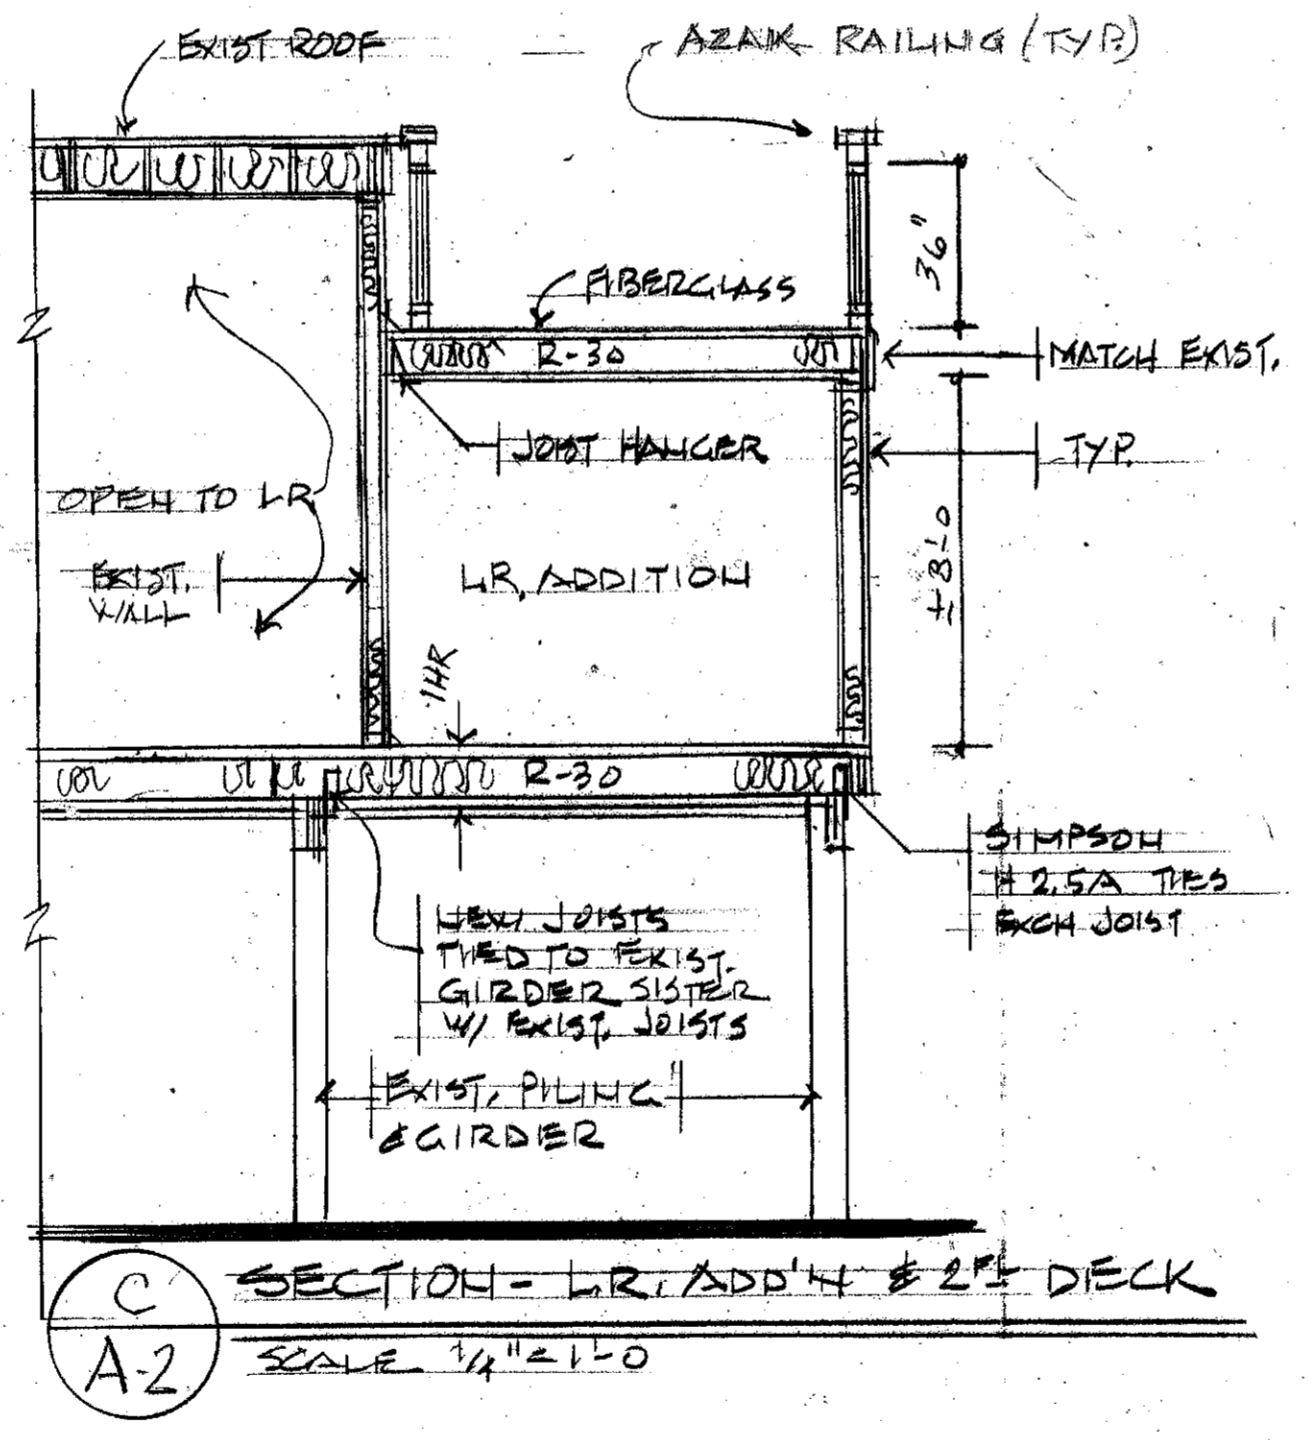 EXIST ROOF
AZAK RAILING (TYP.)
36"
FIBERGLASS
R-30
MATCH EXIST.
JOIST HANGER
TYP.
OPEN TO LR
±8'-0
EXIST.
WALL
L.R. ADDITION
1HR
R-30
SIMPSON
H2.5A TIES
EACH JOIST
NEW JOISTS
TIED TO EXIST.
GIRDER SISTER
W/ EXIST. JOISTS
EXIST. PILING
& GIRDER
C
A-2
SECTION - L.R. ADD'N & 2FL DECK
SCALE 1/4" = 1'-0